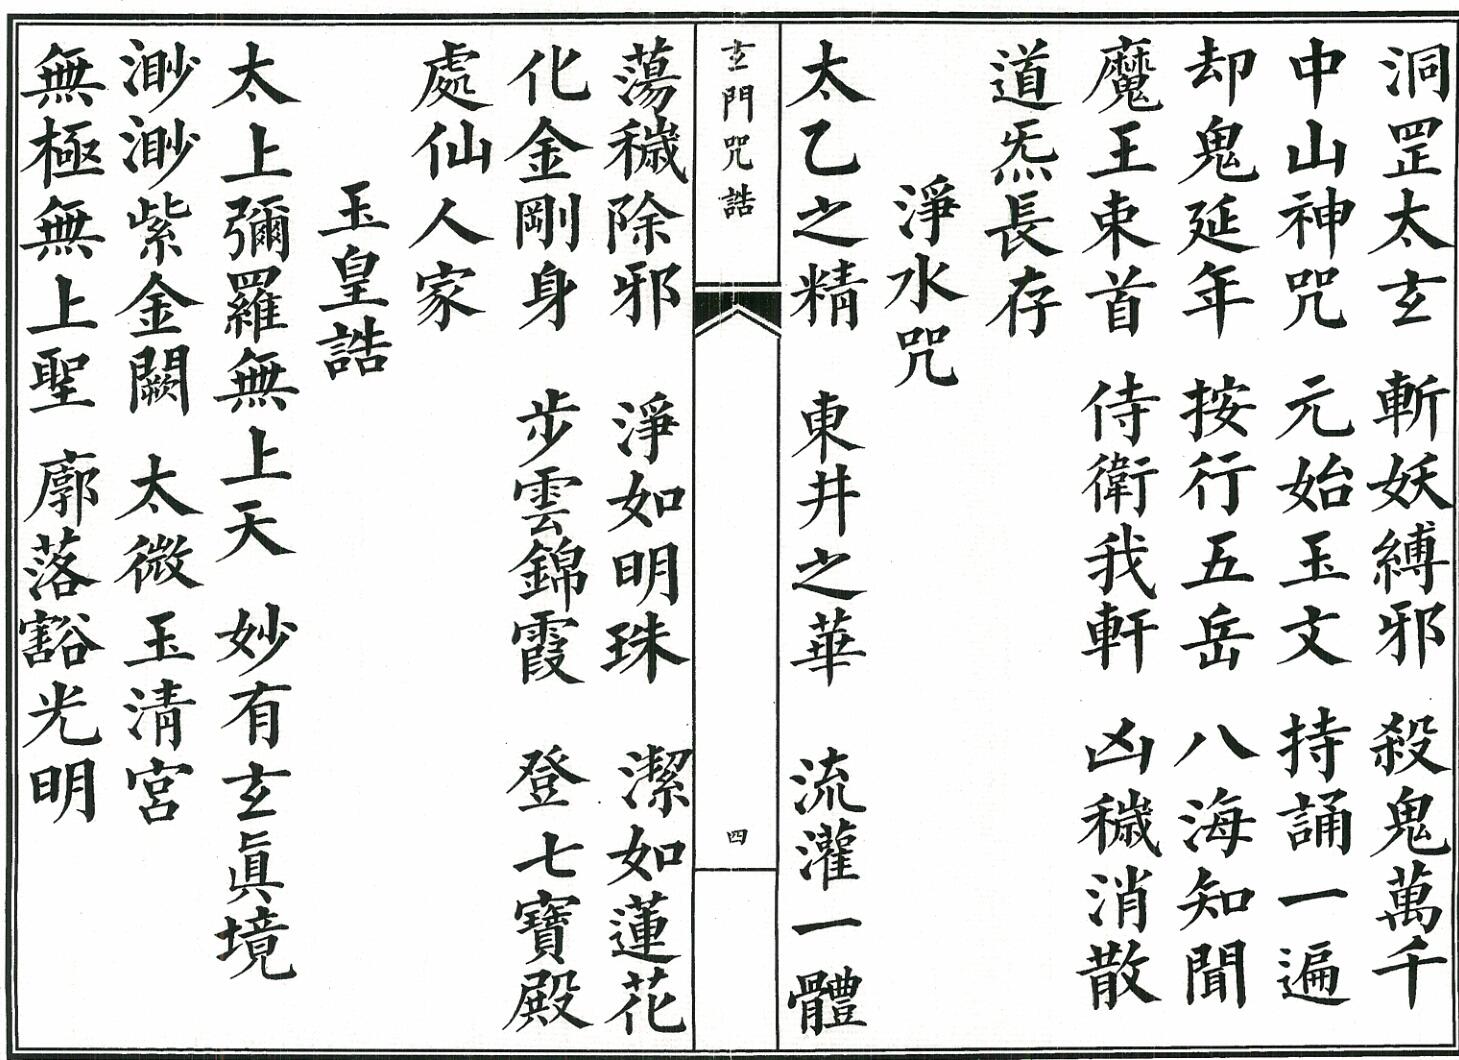 洞罡太玄 斬妖縛邪 殺鬼萬千
中山神咒 元始玉文 持誦一遍
却鬼延年 按行五岳 八海知聞
魔王束首 侍衛我軒 凶穢消散
道炁長存
淨水咒
太乙之精 東井之華 流灌一體
玄門咒誥
四
蕩穢除邪 淨如明珠 潔如蓮花
化金剛身 步雲錦霞 登七寶殿
處仙人家
玉皇誥
太上彌羅無上天 妙有玄眞境
渺渺紫金闕 太微玉清宮
無極無上聖 廓落豁光明